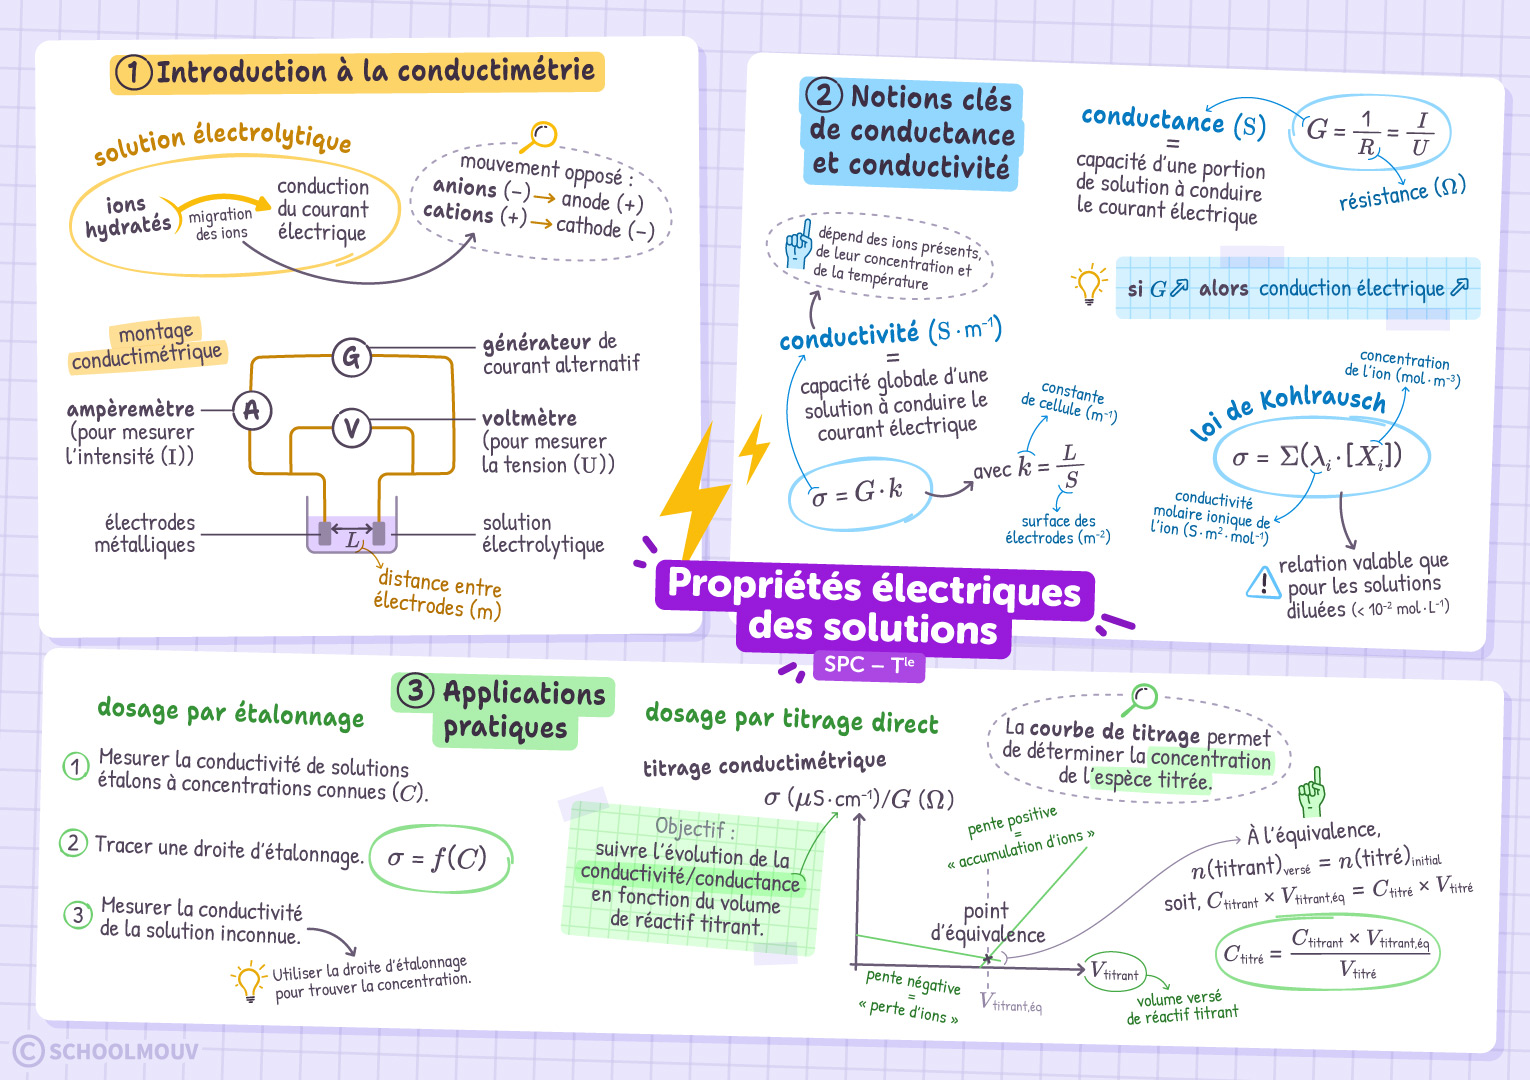 ① Introduction à la conductimétrie
solution électrolytique
ions
hydratés
migration
des ions
conduction
du courant
électrique
mouvement opposé :
anions (−) → anode (+)
cations (+) → cathode (−)
montage
conductimétrique
G
générateur de
courant alternatif
ampèremètre
(pour mesurer
l'intensité (I))
A
V
voltmètre
(pour mesurer
la tension (U))
électrodes
métalliques
L
solution
électrolytique
distance entre
électrodes (m)
② Notions clés
de conductance
et conductivité
conductance (S)
=
capacité d'une portion
de solution à conduire
le courant électrique
G = 1/R = I/U
résistance (Ω)
dépend des ions présents,
de leur concentration et
de la température
si G ↗ alors conduction électrique ↗
conductivité (S·m⁻¹)
=
capacité globale d'une
solution à conduire le
courant électrique
σ = G·k
avec k = L/S
constante
de cellule (m⁻¹)
surface des
électrodes (m⁻²)
loi de Kohlrausch
concentration
de l'ion (mol·m⁻³)
σ = Σ(λᵢ·[Xᵢ])
conductivité
molaire ionique de
l'ion (S·m²·mol⁻¹)
relation valable que
pour les solutions
diluées (< 10⁻² mol·L⁻¹)
Propriétés électriques
des solutions
SPC – Tˡᵉ
③ Applications
pratiques
dosage par étalonnage
① Mesurer la conductivité de solutions
étalons à concentrations connues (C).
② Tracer une droite d'étalonnage.
σ = f(C)
③ Mesurer la conductivité
de la solution inconnue.
Utiliser la droite d'étalonnage
pour trouver la concentration.
dosage par titrage direct
titrage conductimétrique
Objectif :
suivre l'évolution de la
conductivité/conductance
en fonction du volume
de réactif titrant.
σ (μS·cm⁻¹)/G (Ω)
pente positive
=
« accumulation d'ions »
point
d'équivalence
pente négative
=
« perte d'ions »
V titrant,éq
V titrant
volume versé
de réactif titrant
La courbe de titrage permet
de déterminer la concentration
de l'espèce titrée.
À l'équivalence,
n(titrant) versé = n(titré) initial
soit, C titrant × V titrant,éq = C titré × V titré
C titré = C titrant × V titrant,éq / V titré
© SCHOOLMOUV